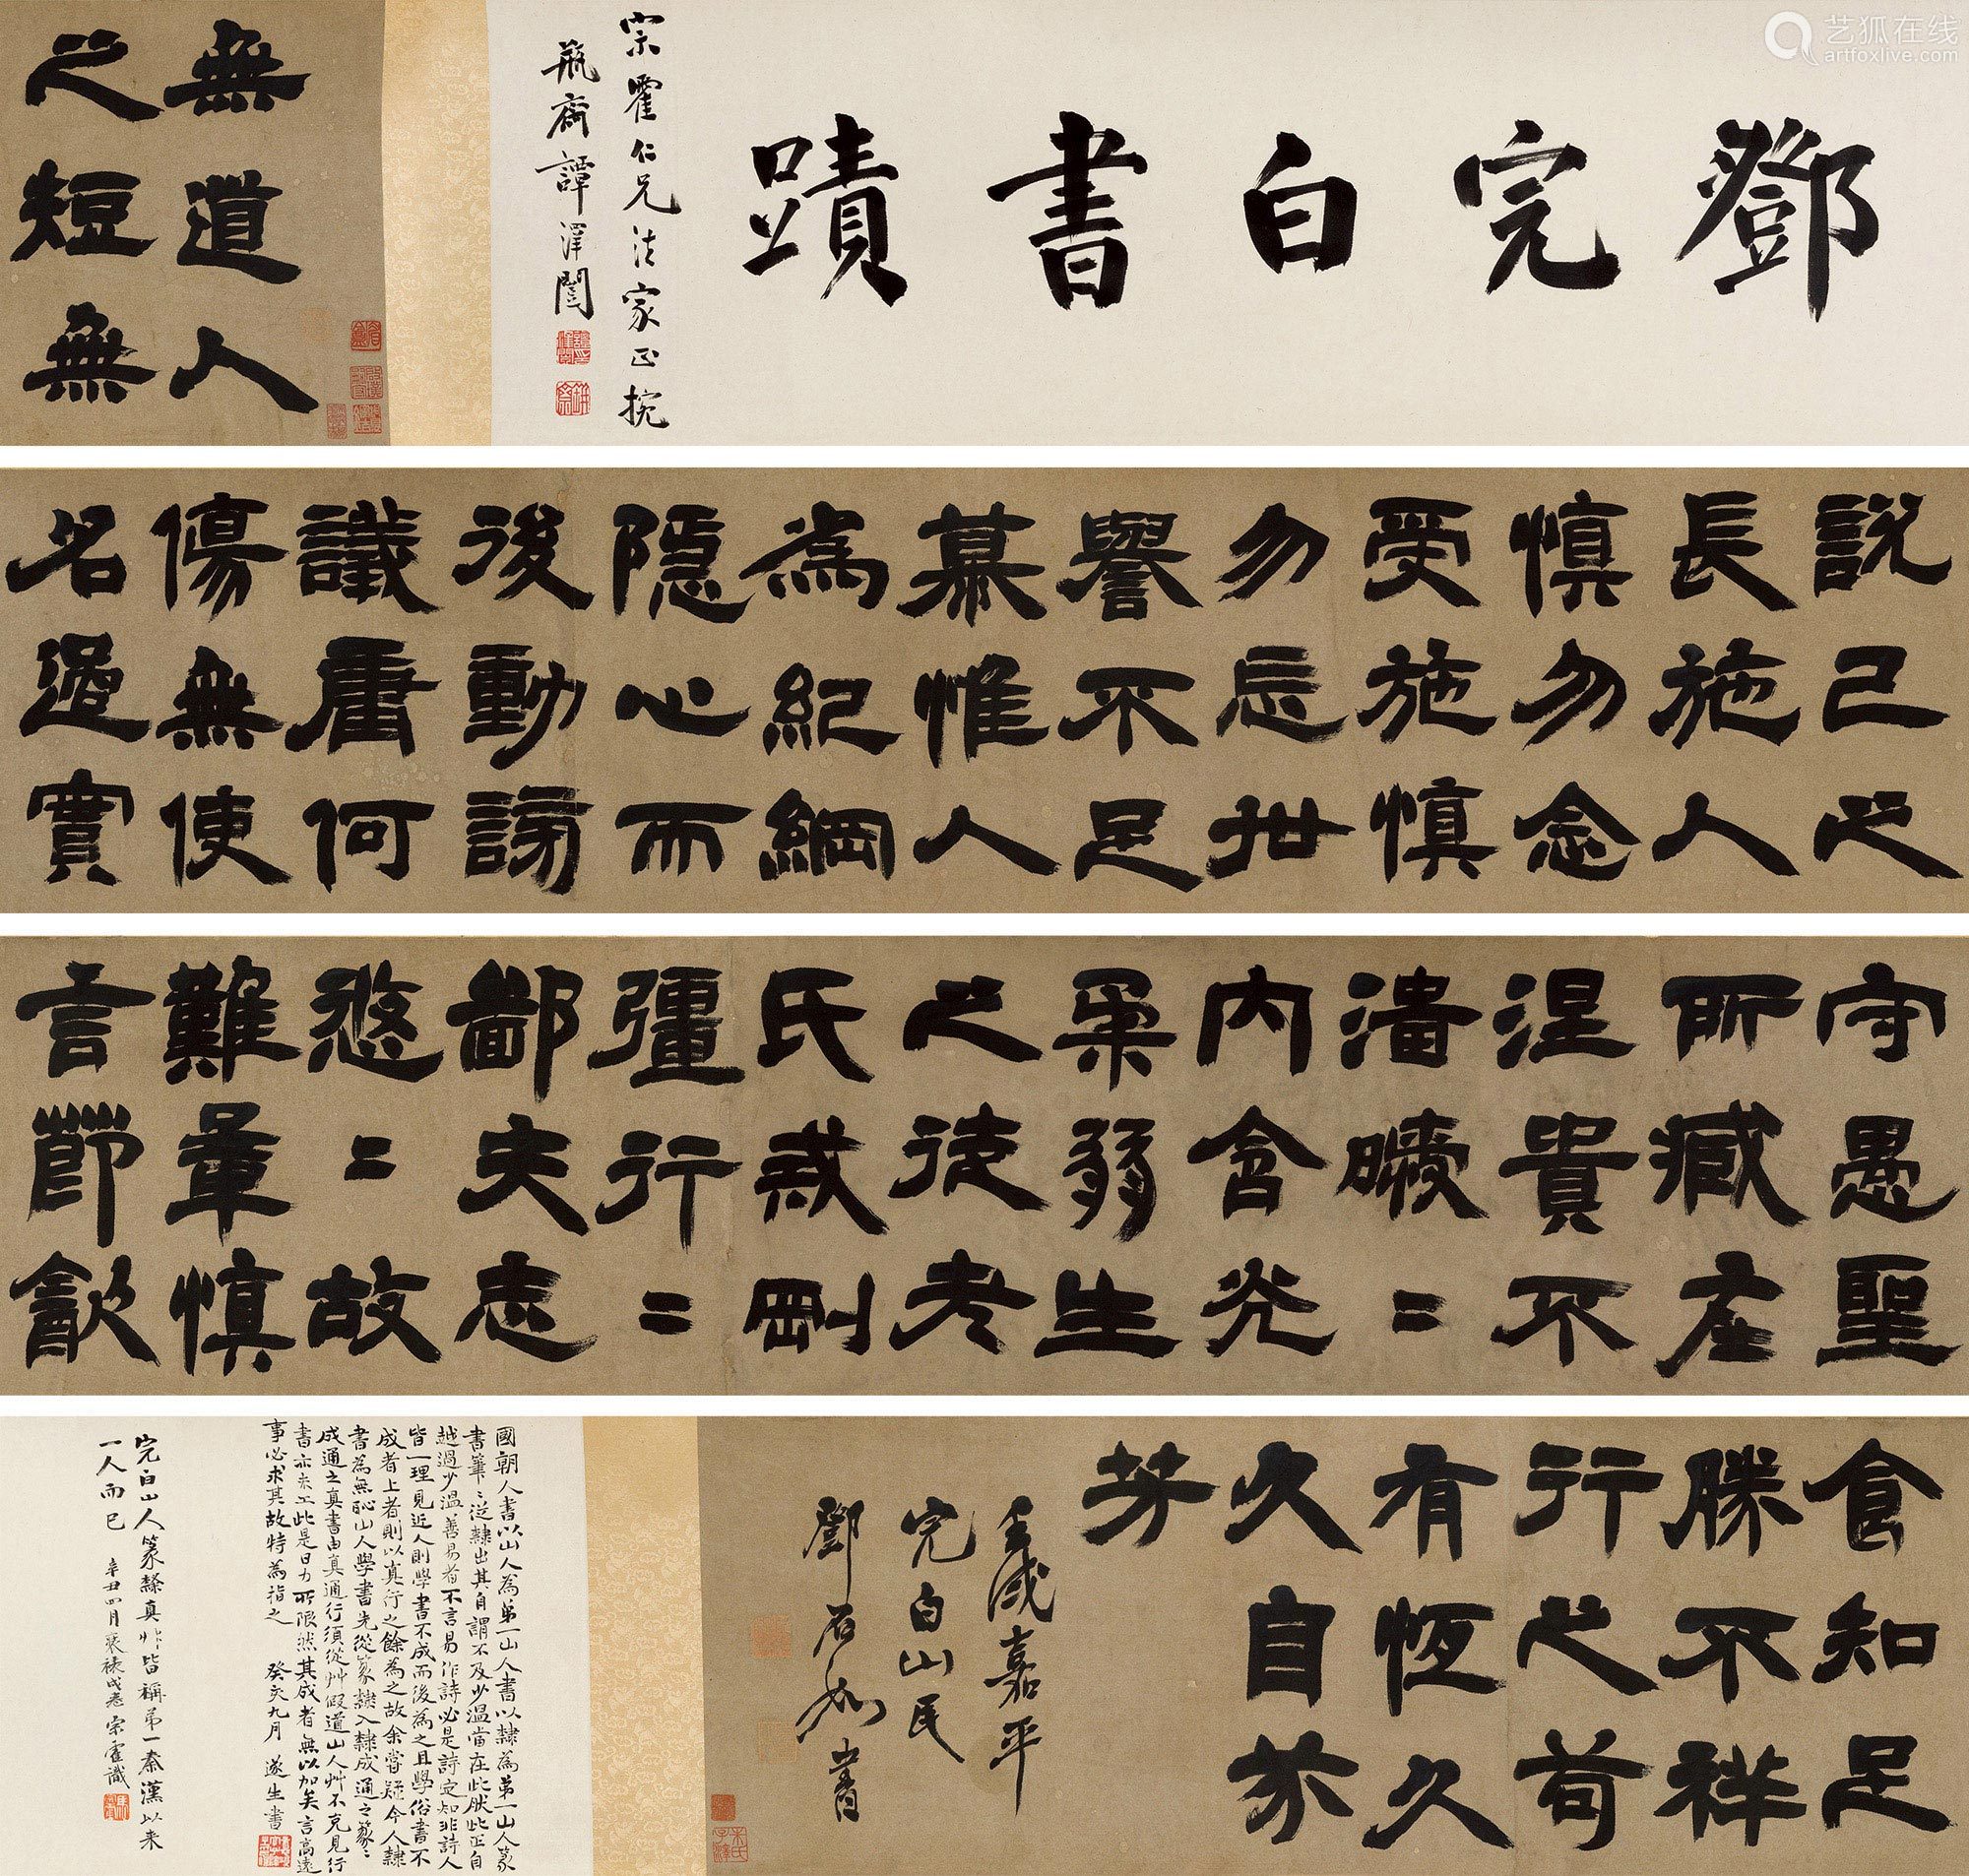 艺狐在线
artfoxlive.com
鄧完白書蹟
宗霍仁兄法家正捥
瓶齋譚澤闓
無道人
之短無
説己之
長施人
慎勿念
受施慎
勿忘世
譽不足
慕惟人
為紀綱
隱心而
後動謗
議庸何
傷無使
名過實
守愚聖
所臧在
涅貴不
淄曖〻
內含光
柔弱生
之徒老
氏戒剛
彊行〻
鄙夫志
悠〻故
難量慎
言節飲
食知足
勝不祥
行之苟
有恆久
久自芬
芳
壬戌嘉平
完白山民
鄧石如書
國朝人書以山人為弟一山人書以隸為弟一山人篆
書筆〻從隸出其自謂不及少溫當在此肰此正自
越過少溫善易者不言易作詩必是詩定知非詩人
皆一理見近人則學書不成而後為之且學俗書不
成者上者則以真行之餘為之故余嘗疑今人隸
書為無恥山人學書先從篆隸入隸成通之篆〻
成通之真書由真通行須從艸假道山人艸不克見行
書亦未工此是日力所限然其成者無以加矣言高遠
事必求其故特為指之 癸亥九月 遂生書
完白山人篆隸真艸皆稱弟一秦漢以來
一人而已 辛丑四月裝褫成卷宗霍識